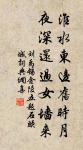 淮水東邊舊時月
夜深還過女牆來
劉禹錫金陵五題石頭
城詞典網集